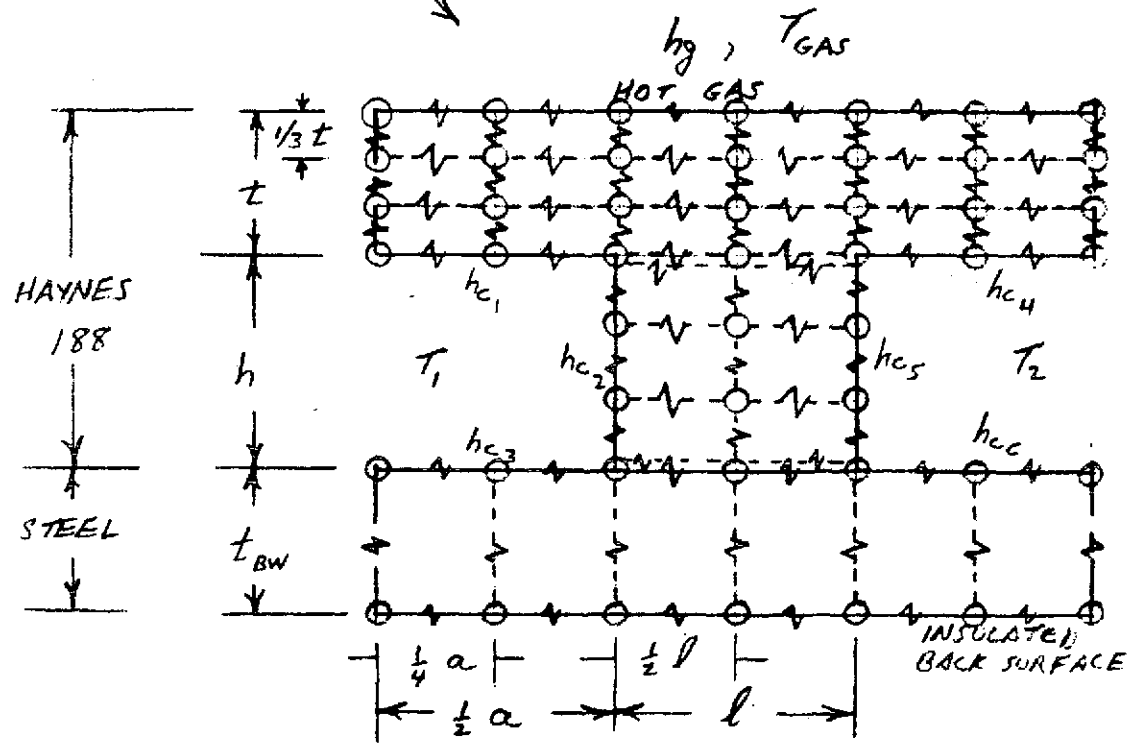 hg , TGAS
HOT GAS
1/3 t
t
HAYNES
188
h
hc1
hc4
T1
hc2
hc5
T2
hc3
hcc
STEEL
tBW
INSULATED
BACK SURFACE
1/4 a
1/2 l
1/2 a
l